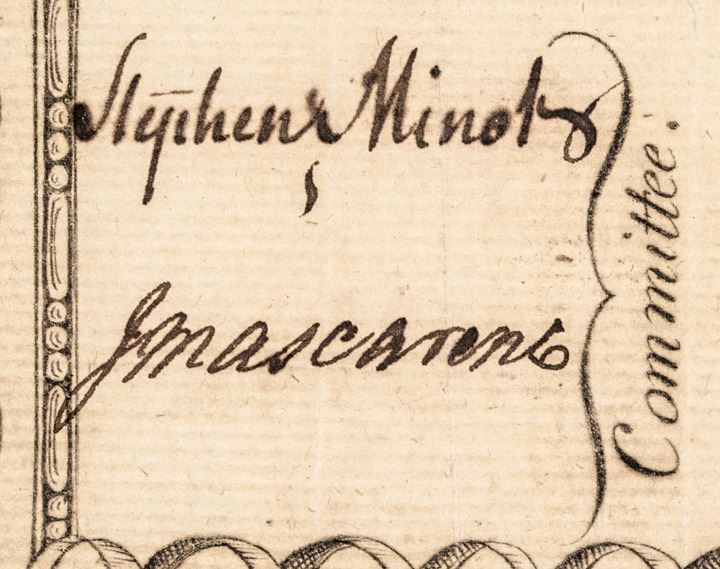 Stephen Minot
J Mascarene
Committee.